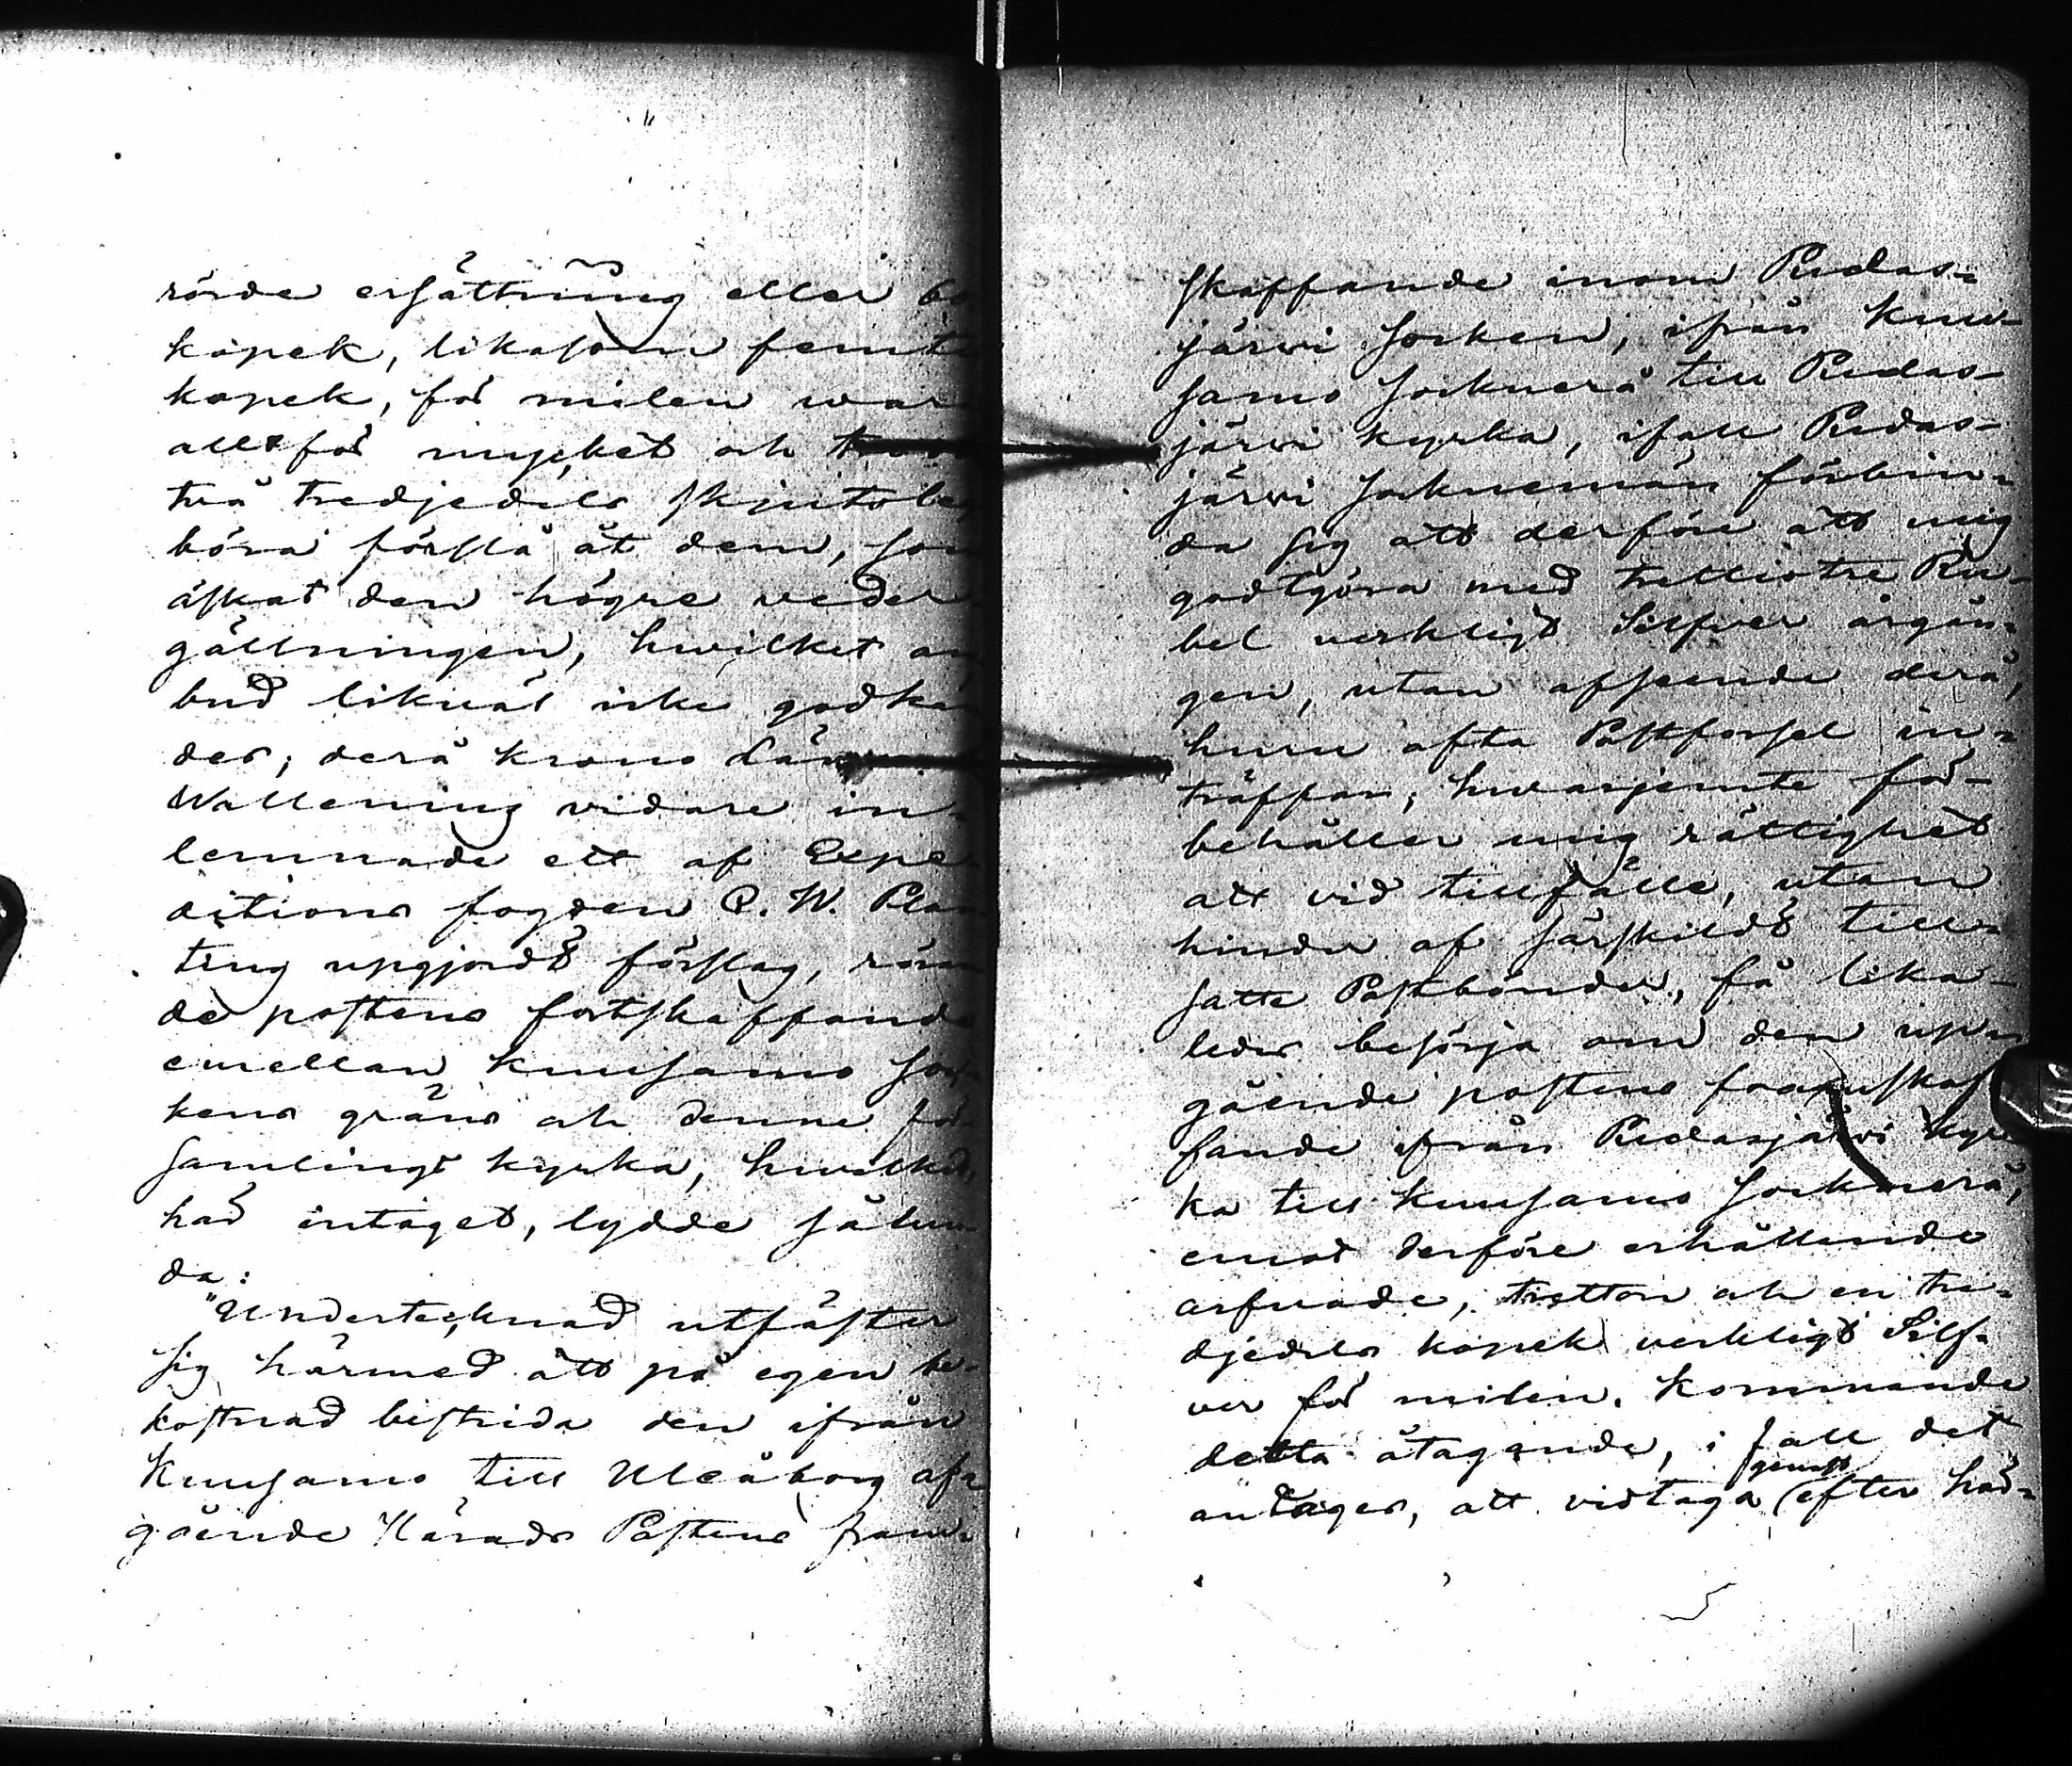 rörde ersättning eller
kopek, likasom femt
kopek, för milen war
alltför mycket och
två tredjedels skjutsle
böra förslå åt dem, som
äskat den högre veder
gällningen, hwilket an
bud likväl icke godkän
des; derå krono Län
Wallening vidare in-
lemnade ett af Expe
ditions fogden P. W. Plan
ting upgjordt förslag, rören
de postens fortskaffande
emellan Kuusamo Soc-
kens gräns och denne för
samlings kyrka, hwilket,
här intaget, lydde sålun
da:
"Undertecknad utfäster
sig härmed att på egen be-
kostnad bestrida den ifrån
Kuusamo till Uleåborg af-
gående Härads Postens fram-
skaffande inom Pudas-
järvi Socken, ifrån Kuu-
samo Socknerå till Pudas-
järvi kyrka, ifall Pudas-
järvi Socknemän förbin-
da sig att derföre att mig
godtgöra med trettiotre Ru-
bel verkligt Silfver årgån-
gen, utan afseende derå,
huru ofta Postforsel in-
träffar; hwarjemte för-
behåller mig rättighet
att vid tillfälle, utan
hinder af särskildt till-
satte Postbönder, få lika-
ledes besörja om den up-
gående postens framskaf
fande ifrån Pudasjärvi kyr
ka till Kuusamo Sockne rå,
emot derföre erhållande
arfvode, tretton och en tre-
djedels kopek verkligt Silf-
ver för milen. Kommande
detta åtagande, i fall det
genast
antages, att vidtaga efter här-